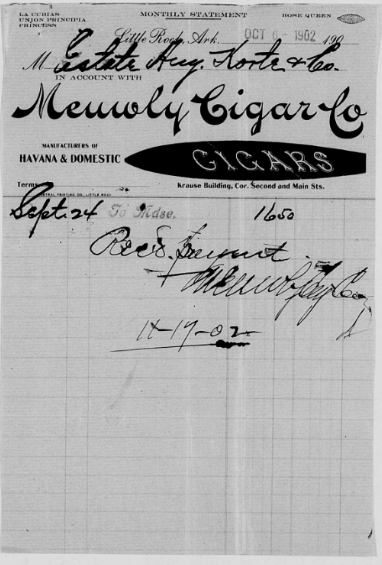 LA CUBIAS
UNION PRINCIPIA
PRINCESS
MONTHLY STATEMENT
ROSE QUEEN
Little Rock, Ark. OCT 6 - 1902 190
M Estate Aug. & Co.
IN ACCOUNT WITH
Meuwly Cigar Co
MANUFACTURERS OF
HAVANA & DOMESTIC
CIGARS
Krause Building, Cor. Second and Main Sts.
Terms
PRINTING CO., LITTLE ROCK
Sept. 24 To Mdse. 16 50
Rec'd Payment
Meuwly Cig Co
11-17-02